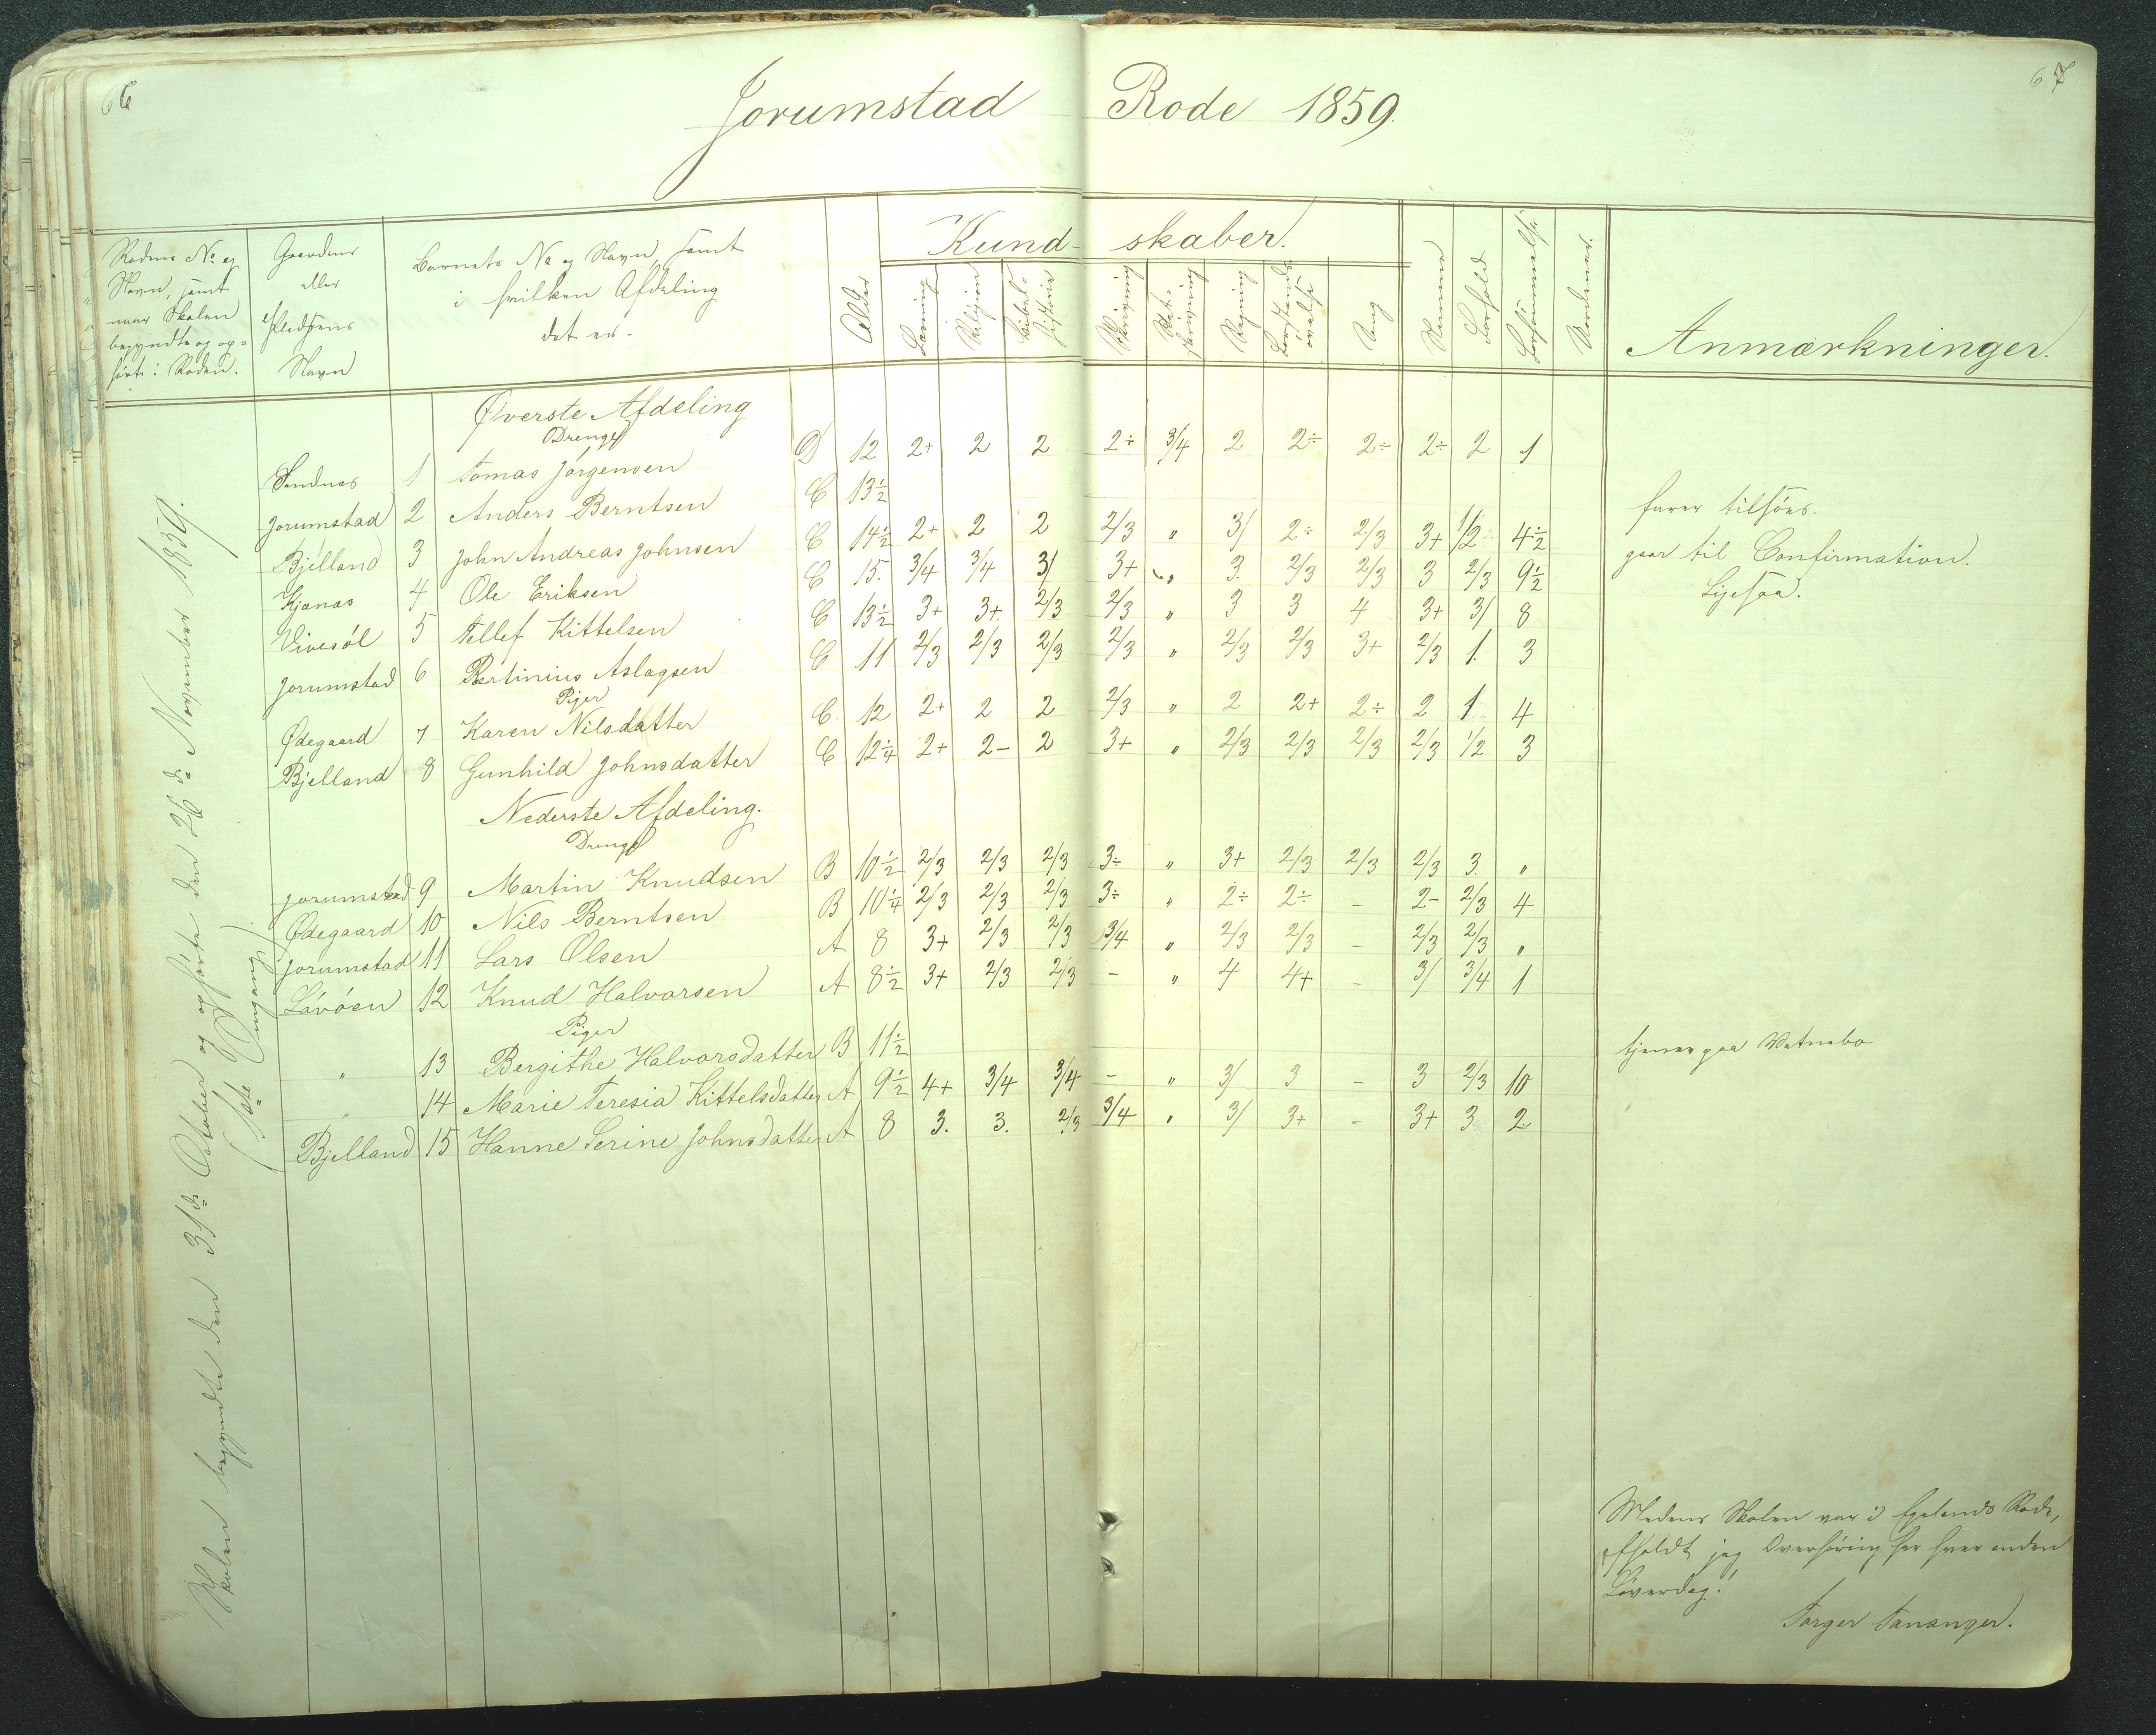 66
67
Jorumstad Rode 1859.
Rodens No og
Navn, samt
naar Skolen
begyndte og op=
hørte i Roden.
Gaardens
eller
Pladsens
Navn
Barnets No og Navn, samt
i hvilken Afdeling
det er.
Alder
Kundskaber.
Læsning
Religion
Bibel-
historie
Skrivning
Ret-
skrivning
Regning
Forstands-
øvelse
Sang
Summa
Forhold
Forsømmelse
Anmærkninger.
Skolen begyndte den 31de October og ophørte den 26de November 1859.
(1ste Omgang)
Øverste Afdeling
Drenge
Sandnes 1 Tomas Jørgensen D 12 2+ 2 2 2÷ 3/4 2 2÷ 2÷ 2÷ 2 1
Jorumstad 2 Anders Berntsen C 13½ farer tilsøes.
Bjelland 3 John Andreas Johnsen C 14½ 2+ 2 2 2/3 " 3/ 2÷ 2/3 3+ 1/2 4½ gaar til Confirmation.
Kjænas 4 Ole Eriksen C 15. 3/4 3/4 3/ 3+ " 3. 2/3 2/3 3 2/3 9½ Ligesaa.
Vivesøl 5 Tellef Kittelsen C 13½ 3+ 3+ 2/3 2/3 " 3 3 4 3+ 3/ 8
Jorumstad 6 Bertinius Aslagsen C 11 2/3 2/3 2/3 2/3 " 2/3 2/3 3+ 2/3 1. 3
Piger
Ødegaard 7 Karen Nilsdatter C. 12 2+ 2 2 2/3 " 2 2+ 2÷ 2 1 4
Bjelland 8 Gunhild Johnsdatter C 12¼ 2+ 2- 2 3+ " 2/3 2/3 2/3 2/3 1/2 3
Nederste Afdeling.
Drenge
Jorumstad 9 Martin Knudsen B 10½ 2/3 2/3 2/3 3÷ " 3+ 2/3 2/3 2/3 3. "
Ødegaard 10 Nils Berntsen B 10¼ 2/3 2/3 2/3 3÷ " 2÷ 2÷ - 2- 2/3 4
Jorumstad 11 Lars Olsen A 8 3+ 2/3 2/3 3/4 " 2/3 2/3 - 2/3 2/3 "
Løvøen 12 Knud Halvorsen A 8½ 3+ 2/3 2/3 - " 4 4+ - 3/ 3/4 1
Piger
" 13 Bergithe Halvorsdatter B 11½ tjener paa Vatnebo
" 14 Marie Teresia Kittelsdatter A 9½ 4+ 3/4 3/4 - " 3/ 3 - 3 2/3 10
Bjelland 15 Hanne Serine Johnsdatter A 8 3. 3. 2/3 3/4 " 3/ 3+ - 3+ 3 2
Medens Skolen var i Egelands Rode,
afholdt jeg Overhøring her hver anden
Løverdag.
Torger Tananger.